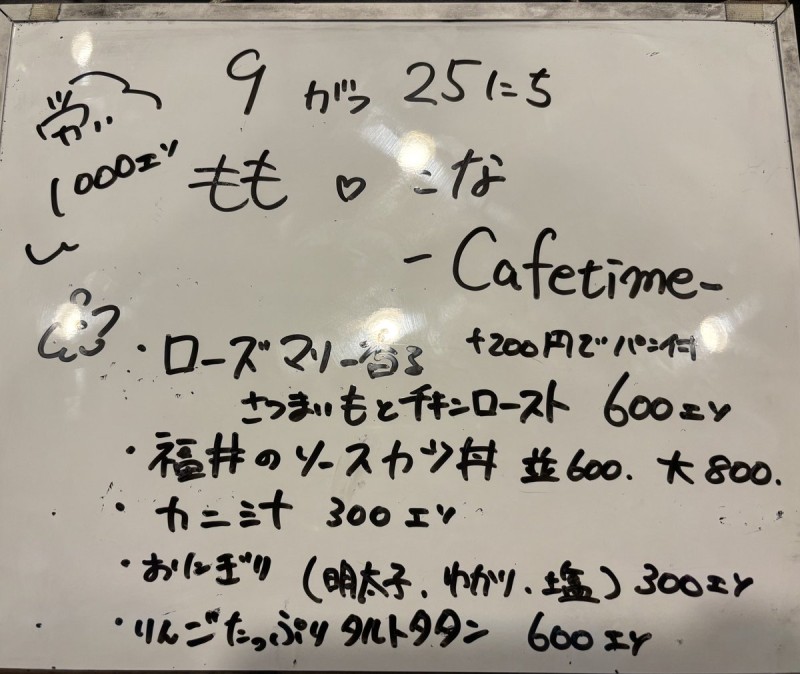 9がつ25にち
1000エン
もも♡こな
-Cafetime-
・ローズマリー香る +200円でパン付
さつまいもとチキンロースト 600エン
・福井のソースカツ丼 並600. 大800.
・カニ汁 300エン
・おにぎり (明太子、わかめ、塩) 300エン
・りんごたっぷりタルトタタン 600エン